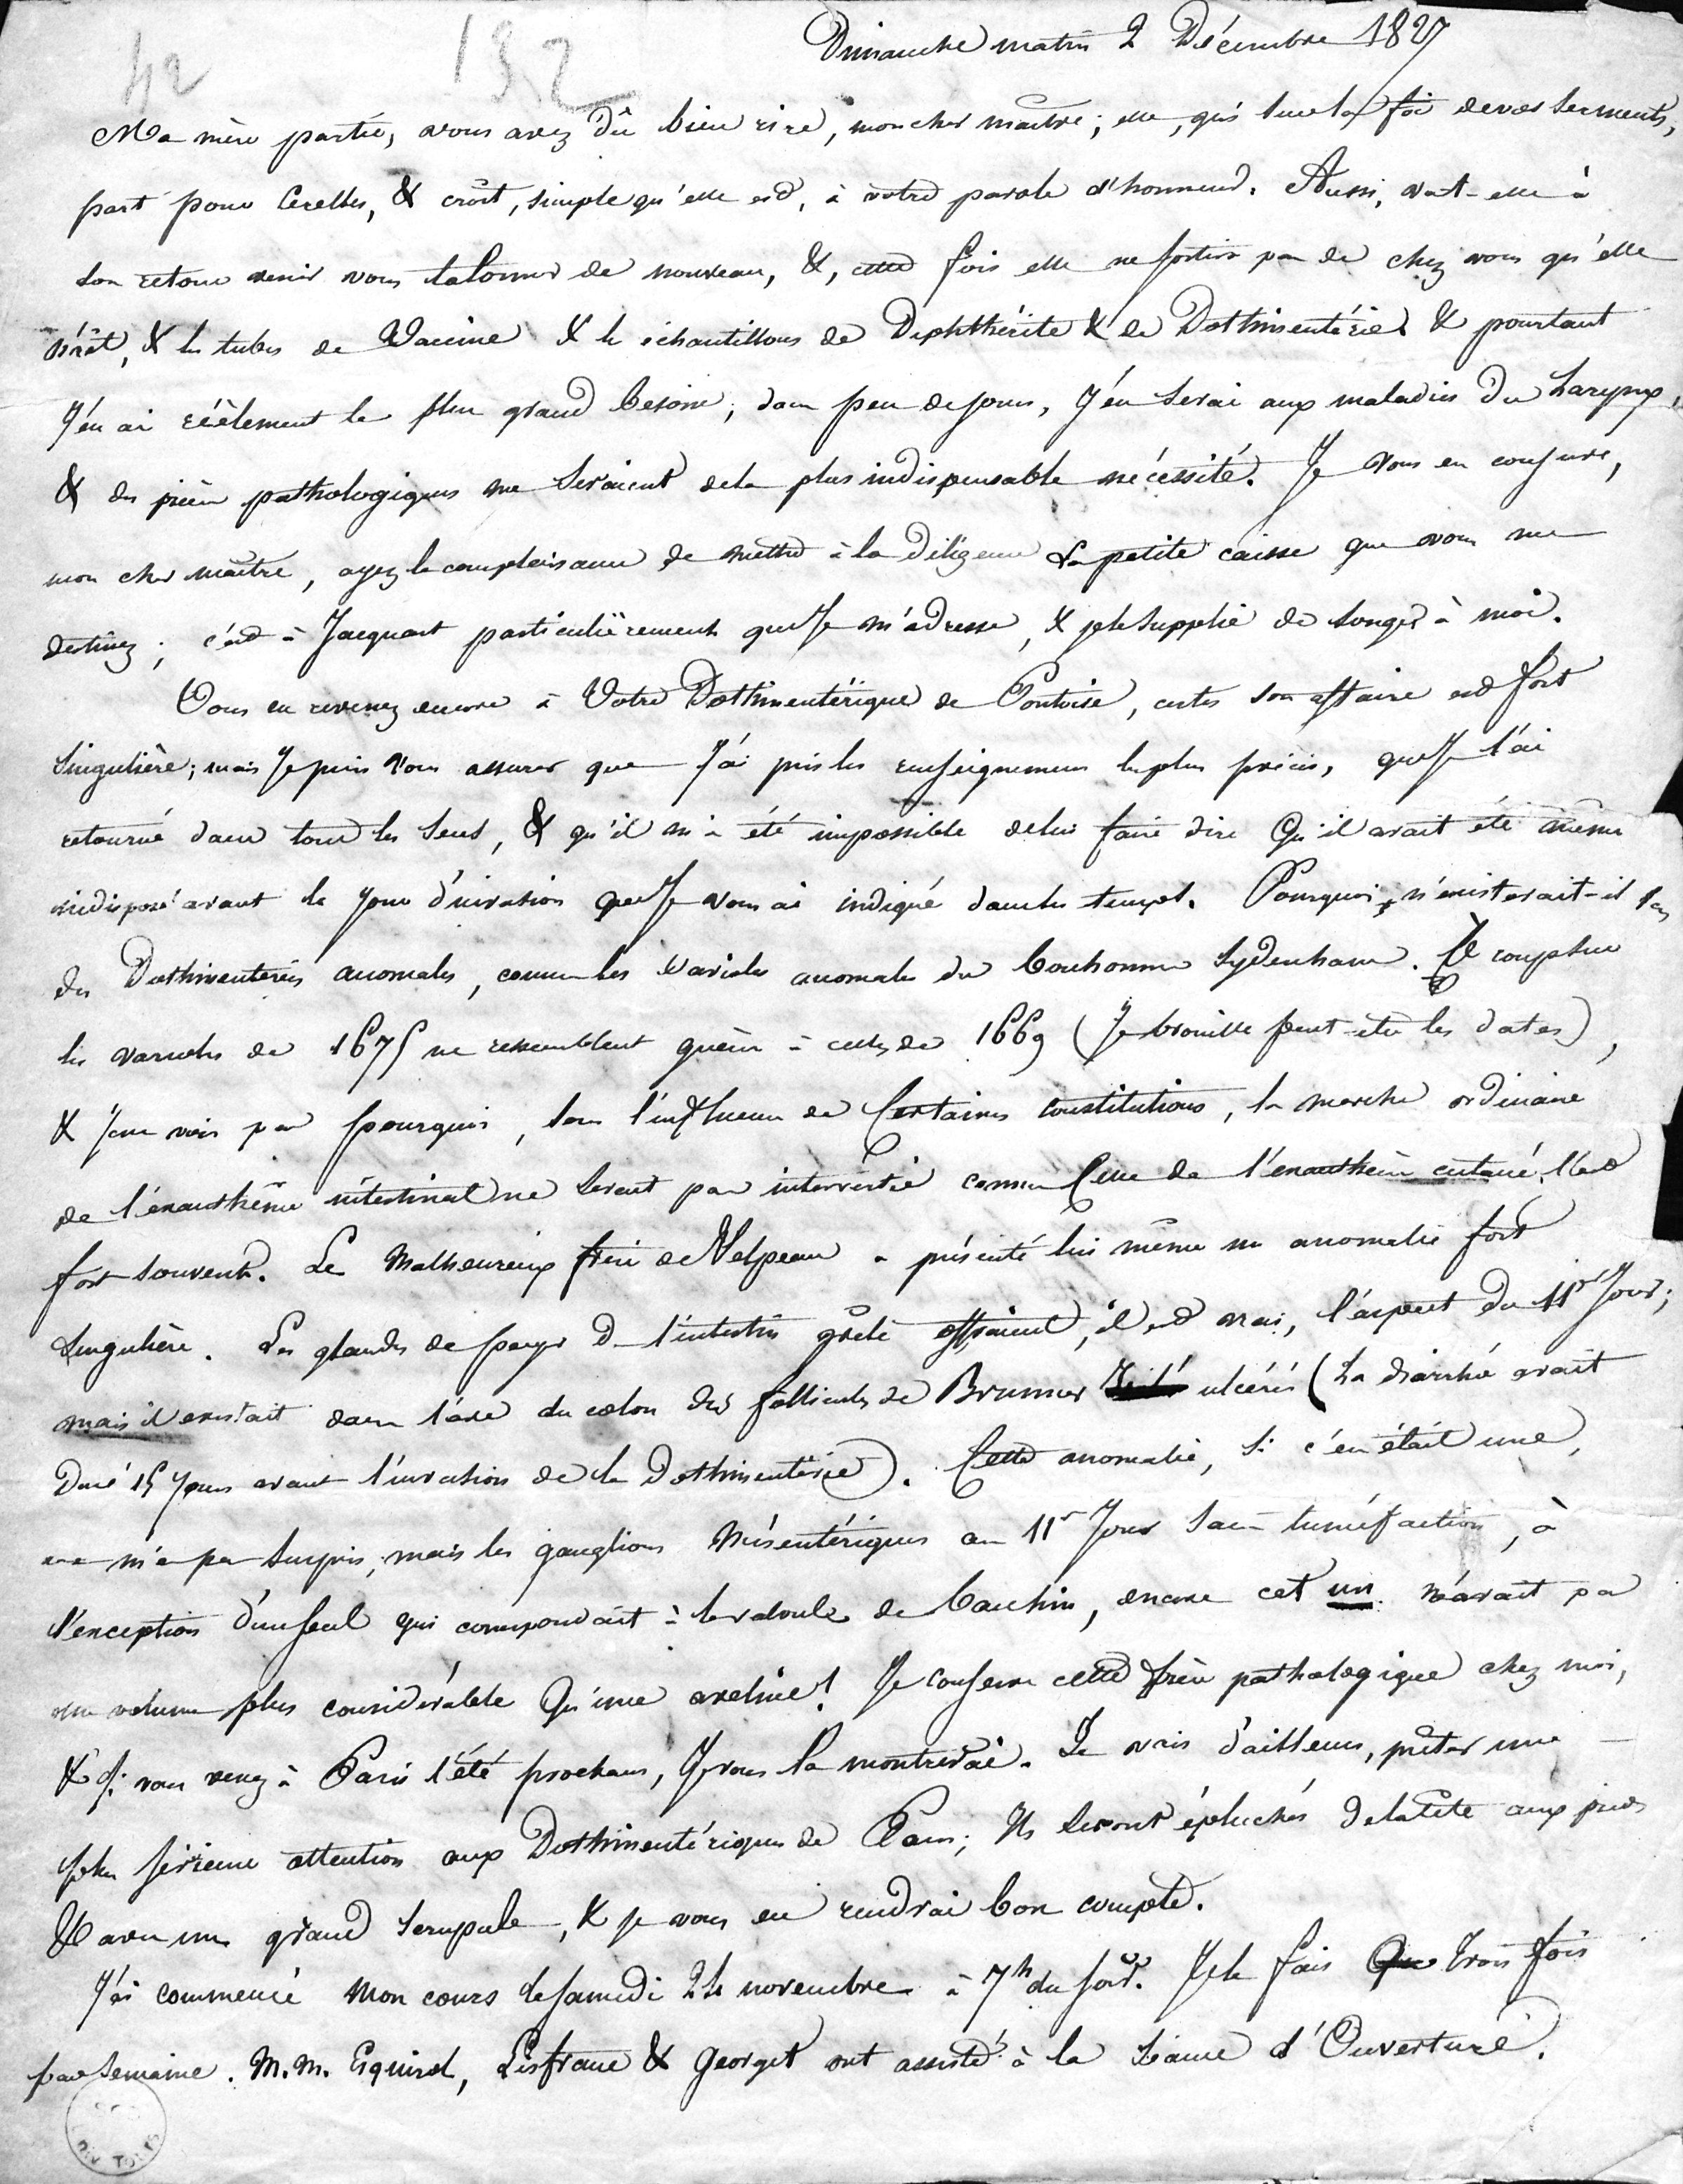 42
192
Dimanche matin 2 Décembre 1827
Ma mère partie, vous avez dû bien rire, mon cher maître; elle, qui sur la foi de vos serments,
part pour Cerelles, & croit, simple qu'elle est, à votre parole d'honneur. Aussi, va-t-elle à
son retour venir vous talonner de nouveau, &, cette fois elle ne sortira pas de chez vous qu'elle
n'ait, & les tubes de Vaccine & les échantillons de Diphthérite & de Dothinentérie & pourtant
J'en ai réèlement le plus grand besoin; dans peu de jours, J'en serai aux maladies du Larynx,
& des pièces pathologiques me seraient de la plus indispensable nécéssité. Je vous en conjure,
mon cher maître, ayez la complaisance de mettre à la diligence la petite caisse que vous me
destinez; c'est à Jacquart particulièrement que Je m'adresse, & je le supplie de songer à moi.
Vous en revenez encore à Votre Dothinentérique de Pontoise, certes son affaire est fort
singulière; mais Je puis vous assurer que J'ai pris les renseignemens les plus précis, que Je l'ai
retourné dans tous les sens, & qu'il m'a été impossible de lui faire dire Qu'il avait été même
indisposé avant le Jour d'invasion que Je vous ai indiqué dans le temps. Pourquoi n'existerait-il pas
des Dothinenteries anomales, comme les varioles anomales du bonhomme Sydenham. À coup sur
les varioles de 1675 ne ressemblent guère à celles de 1669 (Je brouille peut-être les dates),
& Je ne vois pas pourquoi, sous l'influence de Certaines constitutions, la marche ordinaire
de l'éxanthême intestinal ne serait pas intervertie comme Celle de l'exanthème cutané l'est
fort souvent. Le Malheureux frère de Velpeau a présenté lui même une anomalie fort
singulière. Les glandes de peyer de l'intestin grêle offraient, il est vrai, l'aspect du 11e Jour;
mais il existait dans l'axe du colon des follicules de Brunner ulcérés (La diarrhée avait
Duré 15 Jours avant l'invasion de la Dothinentérie). Cette anomalie, si c'en était une,
ne m'a pas surpris, mais les ganglions Mésentériques au 11e Jour sans tuméfaction, à
l'exception d'un seul qui correspondait à la valvule de bauhin, encore cet un n'avait pas
un volume plus considérable Qu'une aveline! Je conserve cette pièce pathologique chez moi,
& si vous venez à Paris l'été prochain, Je vous la montrerai. Je vais d'ailleurs, prêter une
plus sérieuse attention aux Dothinentériques de Paris; Ils seront épluchés de la tête aux pieds
& avec un grand scrupule, & je vous en rendrai bon compte.
J'ai commencé mon cours le samedi 24 novembre à 7h du soir. Je le fais trois fois
par semaine. M.M. Esquirol, Lisfranc & Georget ont assisté à la séance d'Ouverture.
TOURS